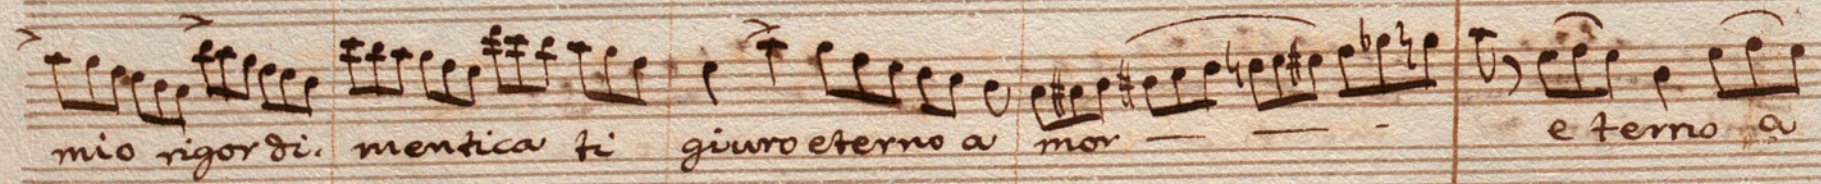 mio rigor di. mentica ti giuro eterno a mor — — - e terno a